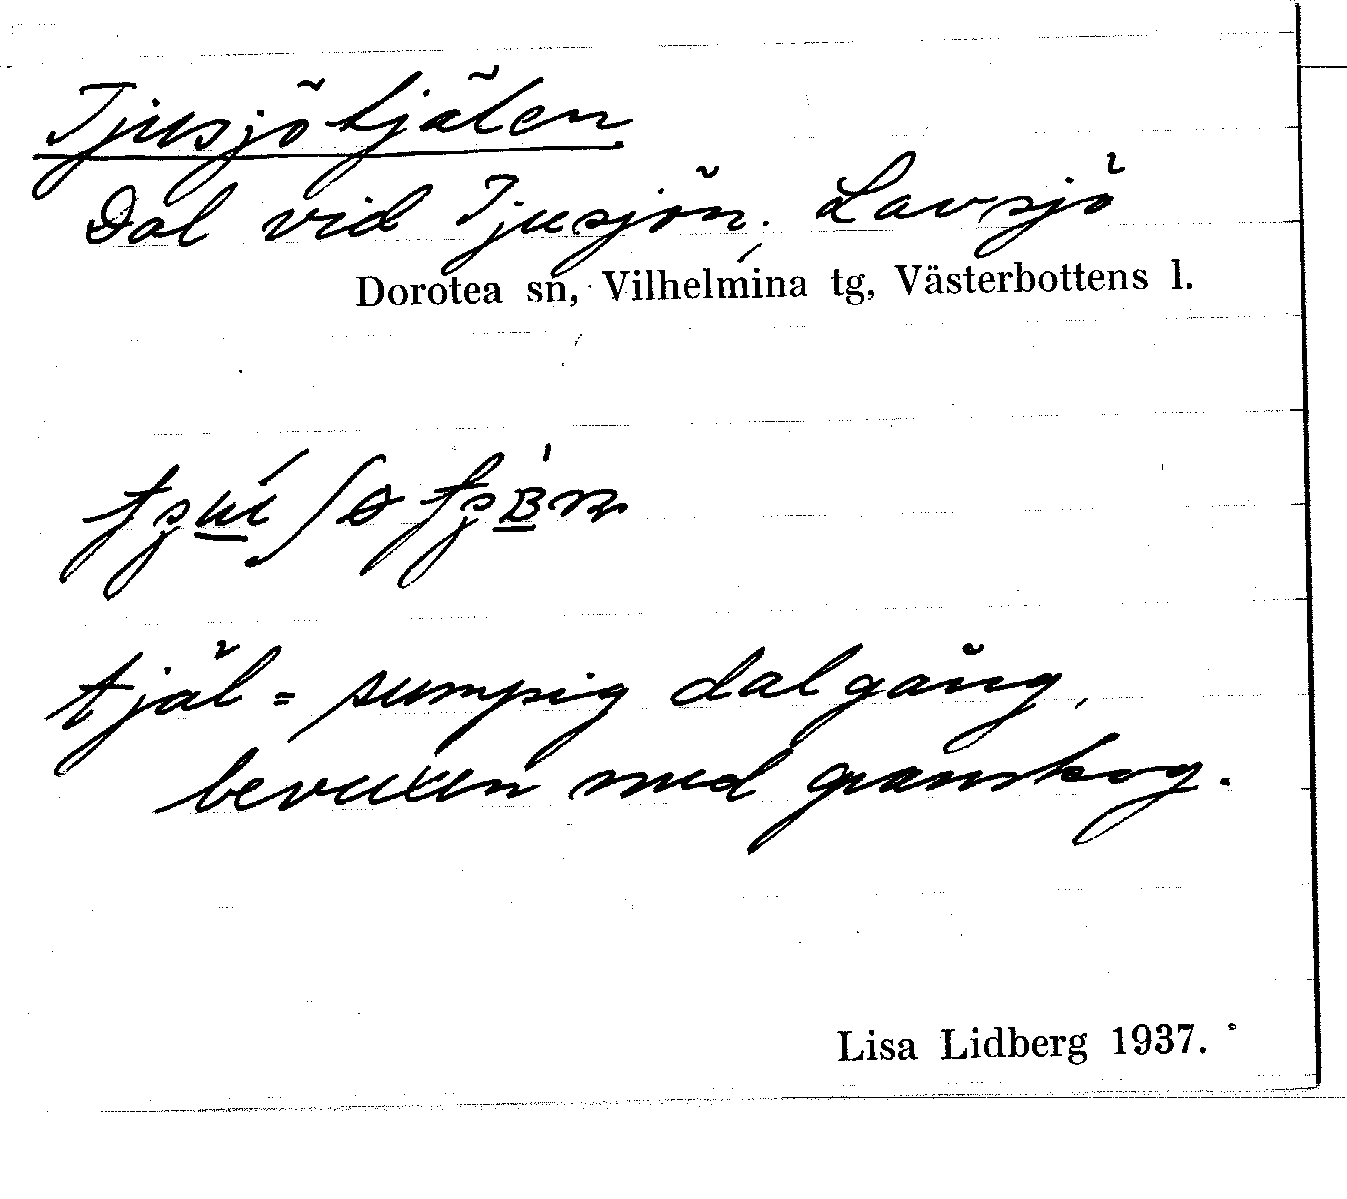 Tjusjötjälen
Dal vid Tjusjön, Lavsjö
Dorotea sn, Vilhelmina tg, Västerbottens l.
tjäl = sumpig dalgång,
bevuxen med granskog.
Lisa Lidberg 1937.